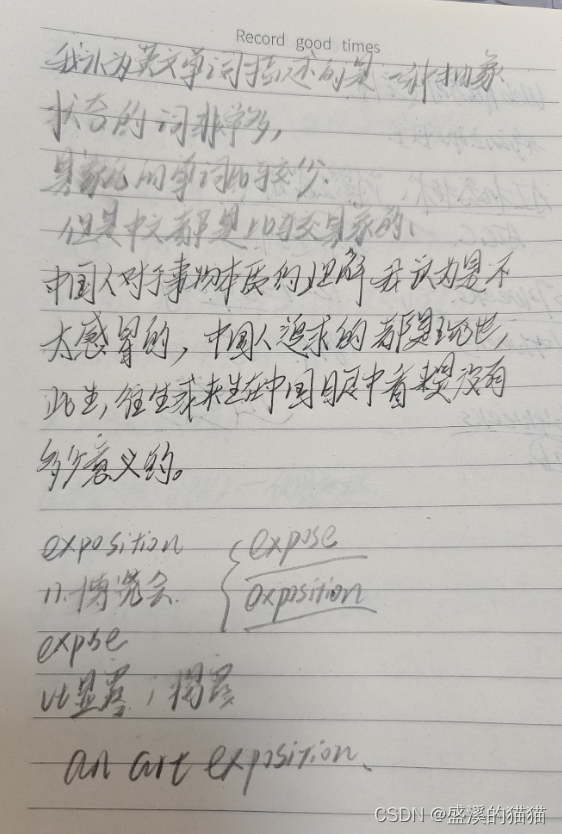 Record good times
我认为英文单词描述的是一种抽象
状态的词非常多,
具象化的单词比较少.
但是中文都是比较具象的,
中国人对于事物本质的理解我认为是不
太感冒的, 中国人追求的都是现世,
此生, 往生或来生在中国人眼中看来是没有
多少意义的。
exposition
n.博览会.
expose
exposition
expose
vt显露; 揭露
an art exposition.
CSDN @盛溪的猫猫